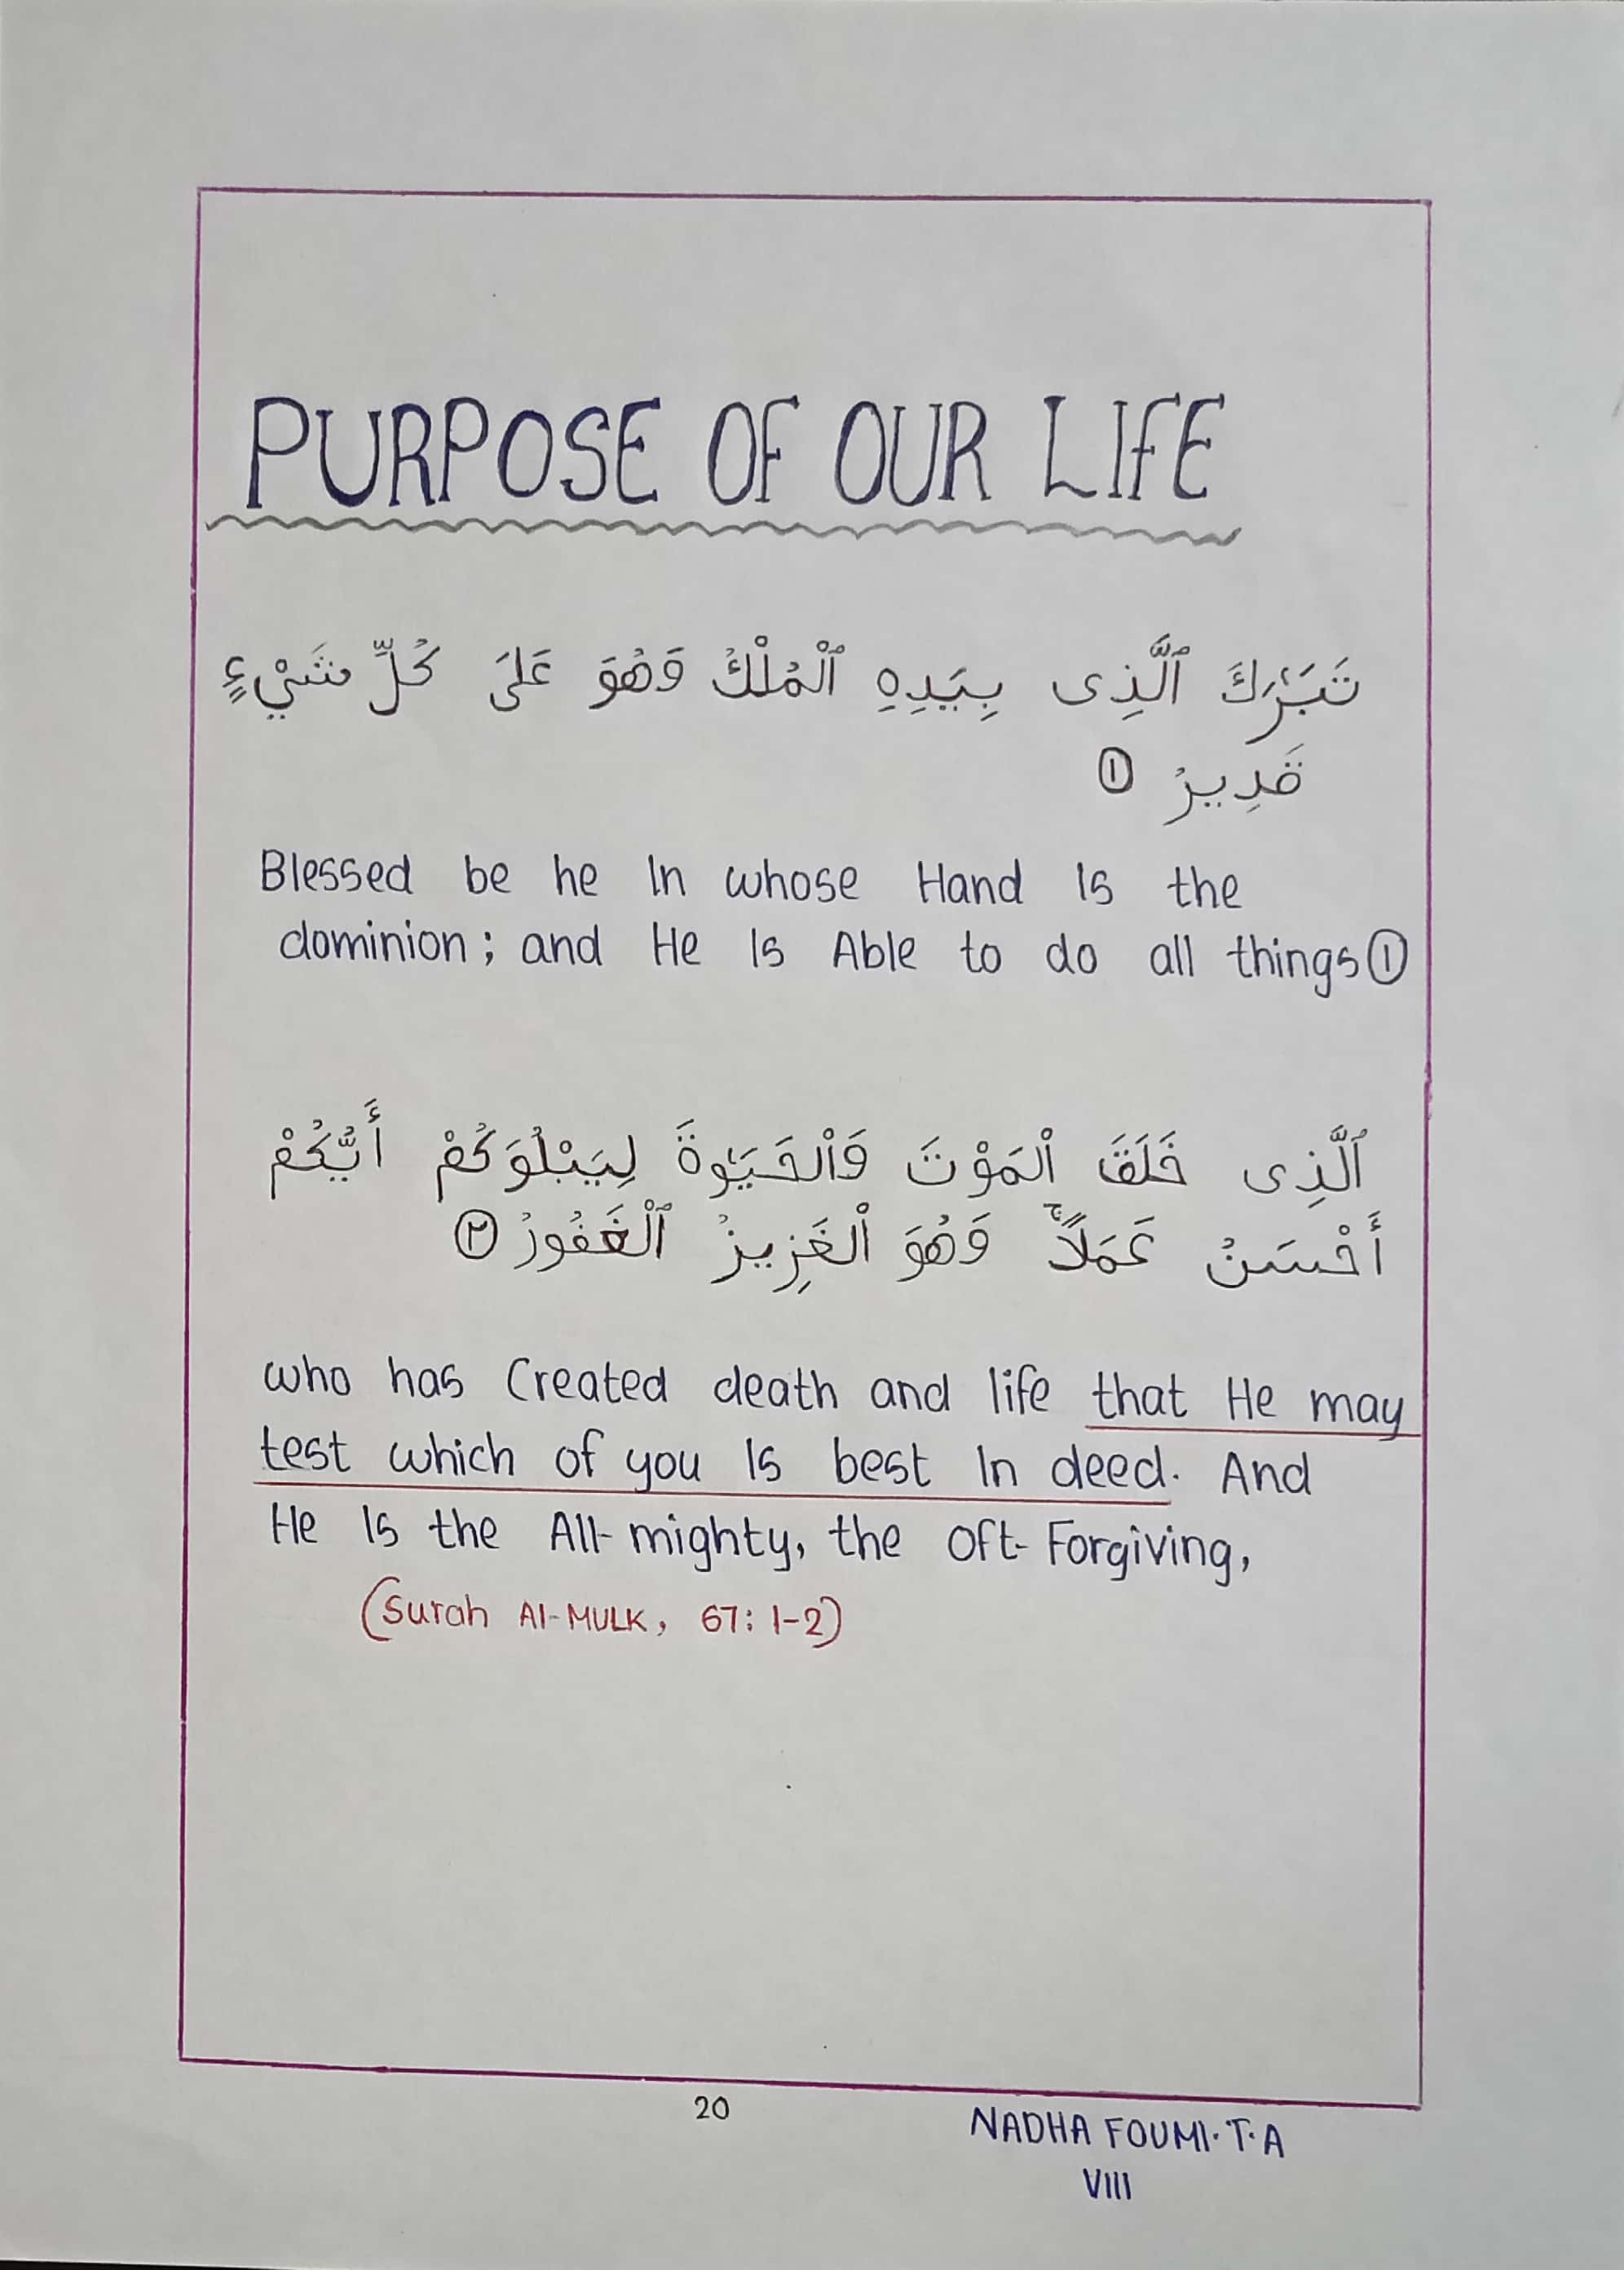 PURPOSE OF OUR LIFE
تَبَٰرَكَ ٱلَّذِى بِيَدِهِ ٱلْمُلْكُ وَهُوَ عَلَىٰ كُلِّ شَيْءٍ
قَدِيرٌ ١
Blessed be he In whose Hand Is the
dominion; and He Is Able to do all things 1
ٱلَّذِى خَلَقَ ٱلْمَوْتَ وَٱلْحَيَوٰةَ لِيَبْلُوَكُمْ أَيُّكُمْ
أَحْسَنُ عَمَلًاۚ وَهُوَ ٱلْغَزِيزُ ٱلْغَفُورُ ٢
who has Created death and life that He may
test which of you Is best In deed. And
He Is the All-mighty, the Oft-Forgiving,
(Surah Al-MULK, 67: 1-2)
20
NADHA FOUMI.T.A
VIII